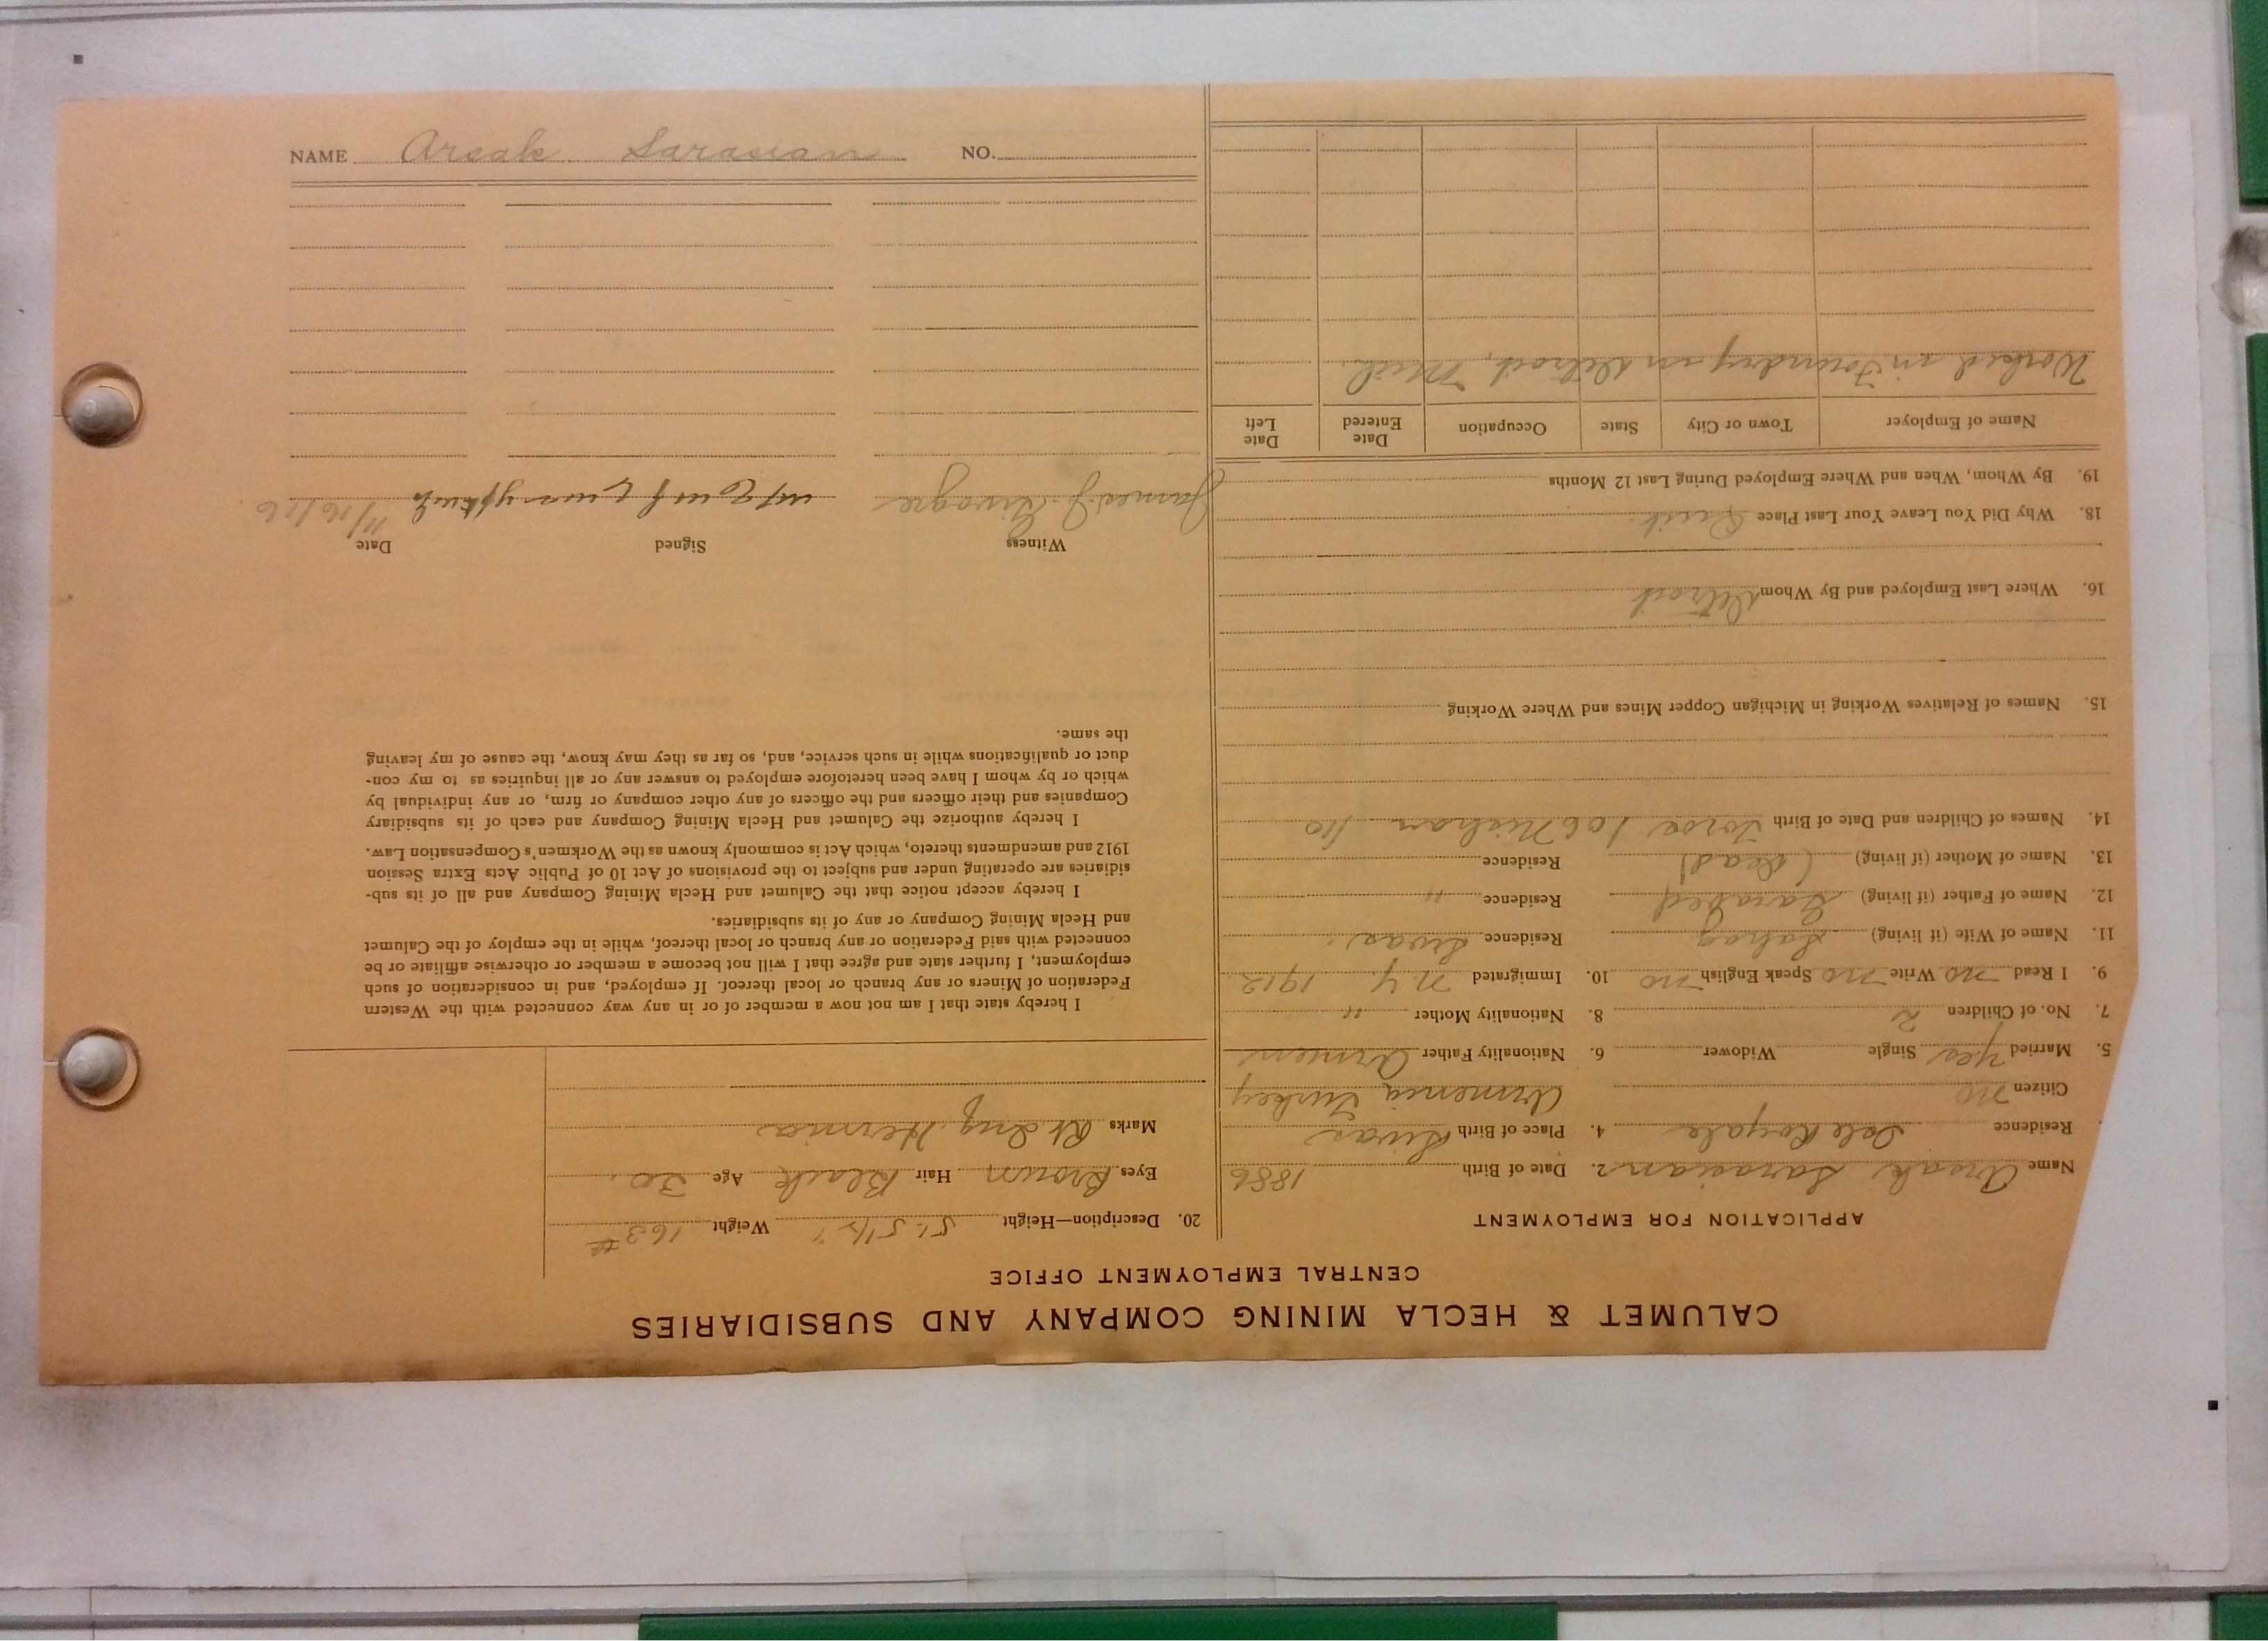 CALUMET & HECLA MINING COMPANY AND SUBSIDIARIES
CENTRAL EMPLOYMENT OFFICE
APPLICATION FOR EMPLOYMENT
Name Arsak Sarasian 2. Date of Birth 1886
Residence Isle Royale 4. Place of Birth Sivas
Citizen no Armenia Turkey
5. Married yes Single Widower 6. Nationality Father Armen
7. No. of Children 2 8. Nationality Mother "
9. I Read no Write no Speak English no 10. Immigrated N Y 1912
11. Name of Wife (if living) Residence Sivas
12. Name of Father (if living) Garabed Residence "
13. Name of Mother (if living) (Dead) Residence
14. Names of Children and Date of Birth
15. Names of Relatives Working in Michigan Copper Mines and Where Working
16. Where Last Employed and By Whom Detroit
18. Why Did You Leave Your Last Place Quit
19. By Whom, When and Where Employed During Last 12 Months
Name of Employer Town or City State Occupation Date Entered Date Left
Worked in Foundry in Detroit, Mich.
20. Description—Height 5'. 5 1/2" Weight 163 #
Eyes Brown Hair Black Age 30.
Marks Rt Ing. Hernia
I hereby state that I am not now a member of or in any way connected with the Western
Federation of Miners or any branch or local thereof. If employed, and in consideration of such
employment, I further state and agree that I will not become a member or otherwise affiliate or be
connected with said Federation or any branch or local thereof, while in the employ of the Calumet
and Hecla Mining Company or any of its subsidiaries.
I hereby accept notice that the Calumet and Hecla Mining Company and all of its sub-
sidiaries are operating under and subject to the provisions of Act 10 of Public Acts Extra Session
1912 and amendments thereto, which Act is commonly known as the Workmen's Compensation Law.
I hereby authorize the Calumet and Hecla Mining Company and each of its subsidiary
Companies and their officers and the officers of any other company or firm, or any individual by
which or by whom I have been heretofore employed to answer any or all inquiries as to my con-
duct or qualifications while in such service, and, so far as they may know, the cause of my leaving
the same.
Witness Signed Date
James J. 11/16/16
NAME Arsak Sarasian NO.